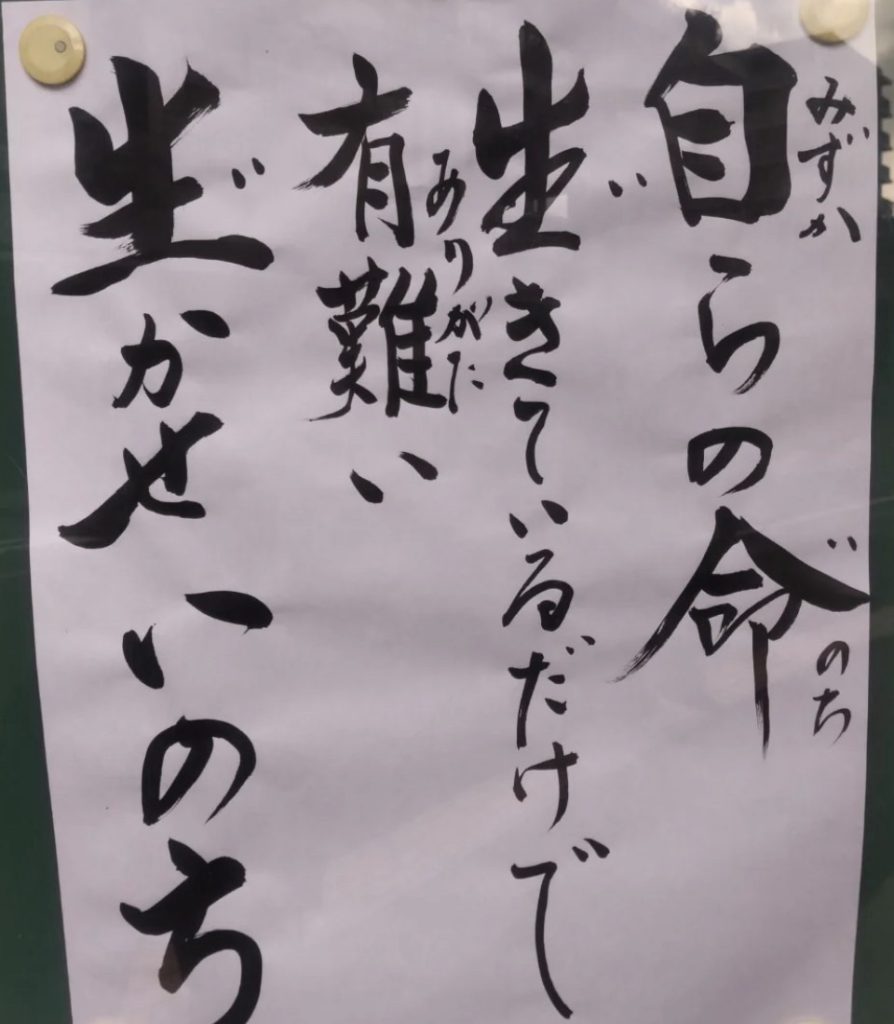 自らの命
みずか
いのち
生きているだけで
い
有難い
ありがた
生かせいのち
い